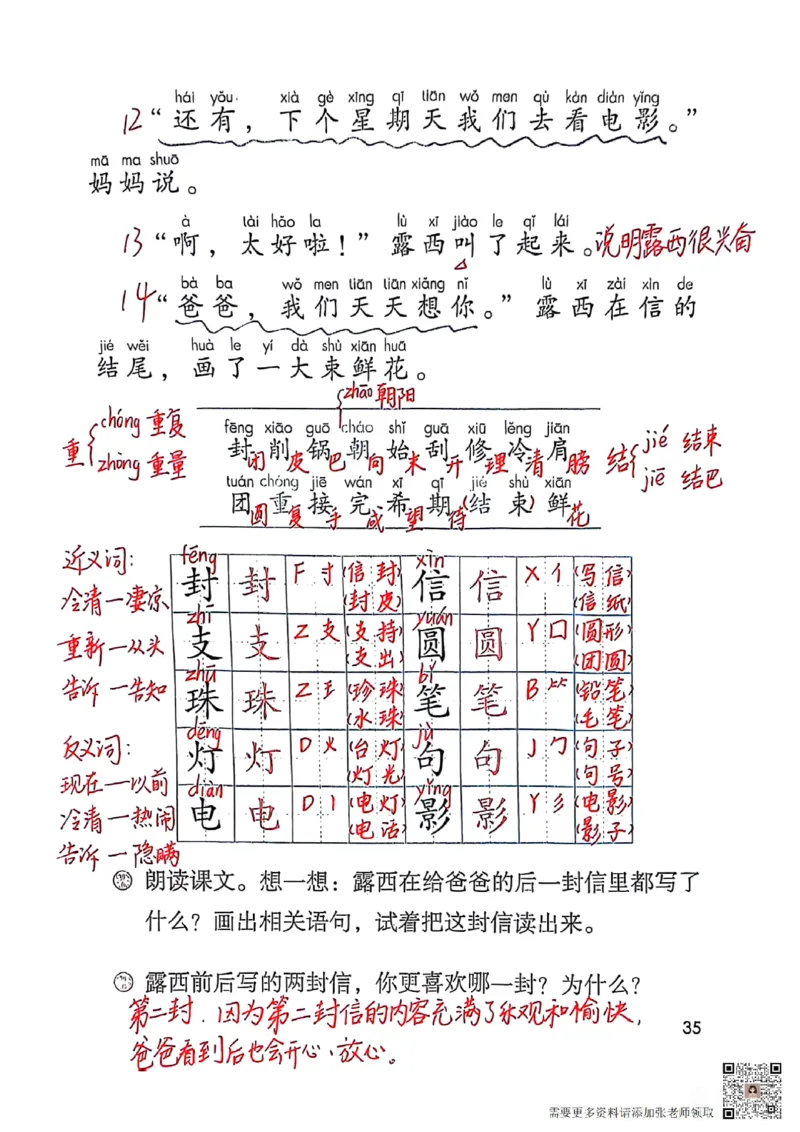 hái yǒu xià gè xīng qī tiān wǒ men qù kàn diàn yǐng
12 “还有，下个星期天我们去看电影。”
mā ma shuō
妈妈说。
à tài hǎo la lù xī jiào le qǐ lái
13 “啊，太好啦！”露西叫了起来。说明露西很兴奋
bà ba wǒ men tiān tiān xiǎng nǐ lù xī zài xìn de
14 “爸爸，我们天天想你。”露西在信的
jié wěi huà le yí dà shù xiān huā
结尾，画了一大束鲜花。
zhāo 朝阳
重 chóng 重复 zhòng 重量
fēng xiāo guō cháo shǐ guā xiū lěng jiān
封削锅朝始刮修冷肩
闭皮巴向末开理清膀
结 jié 结束 jiē 结巴
tuán chóng jiē wán xī qī jié shù xiān
团重接完希期(结束)鲜
圆复手成望待花
近义词：
冷清—凄凉
重新—从头
告诉—告知
反义词：
现在—以前
冷清—热闹
告诉—隐瞒
fēng xìn
封 封 F 寸 (信封) 信 信 X 亻 (写信)
(封皮) (信纸)
zhī yuán
支 支 Z 支 (支持) 圆 圆 Y 囗 (圆形)
(支出) (团圆)
zhū bǐ
珠 珠 Z 王 (珍珠) 笔 笔 B ⺮ (铅笔)
(水珠) (毛笔)
dēng jù
灯 灯 D 火 (台灯) 句 句 J 勹 (句子)
(灯光) (句号)
diàn yǐng
电 电 D 丨 (电灯) 影 影 Y 彡 (电影)
(电话) (影子)
朗读课文。想一想：露西在给爸爸的后一封信里都写了
什么？画出相关语句，试着把这封信读出来。
露西前后写的两封信，你更喜欢哪一封？为什么？
第二封，因为第二封信的内容充满了乐观和愉快，
爸爸看到后也会开心、放心。
35
需要更多资料请添加张老师领取